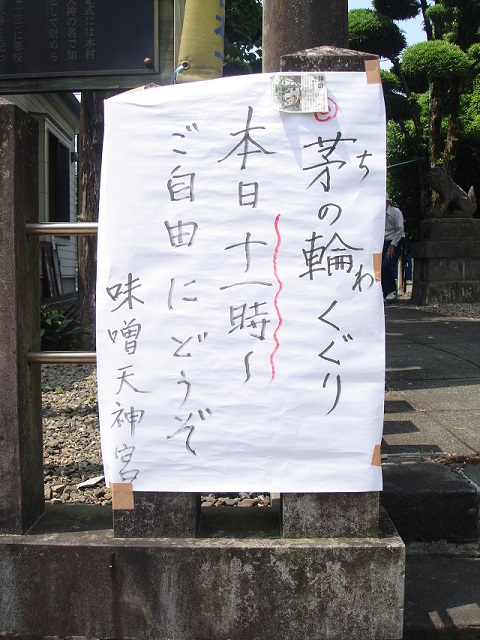 茅の輪くぐり
ちわ
本日十一時〜
ご自由にどうぞ
味噌天神宮